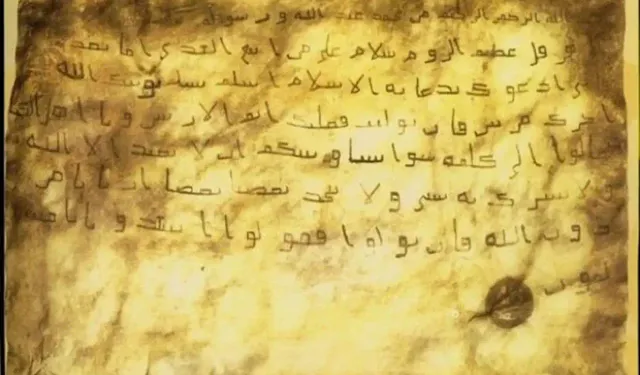 الله الرحمن الرحيم من محمد عبد الله ورسوله
هرقل عظيم الروم سلام على من اتبع الهدى اما بعد
ادعوك بدعاية الاسلام اسلم تسلم يوتك الله
اجرك مرتين فان توليت فعليك اثم الاريسين ويا اهل
تعالوا الى كلمة سوا بيننا وبينكم ان لا نعبد الا الله
ولا نشرك به شى ولا يتخذ بعضنا بعضا اربابا من
دون الله فان تولوا فقولوا اشهدوا بانا مس
لمون